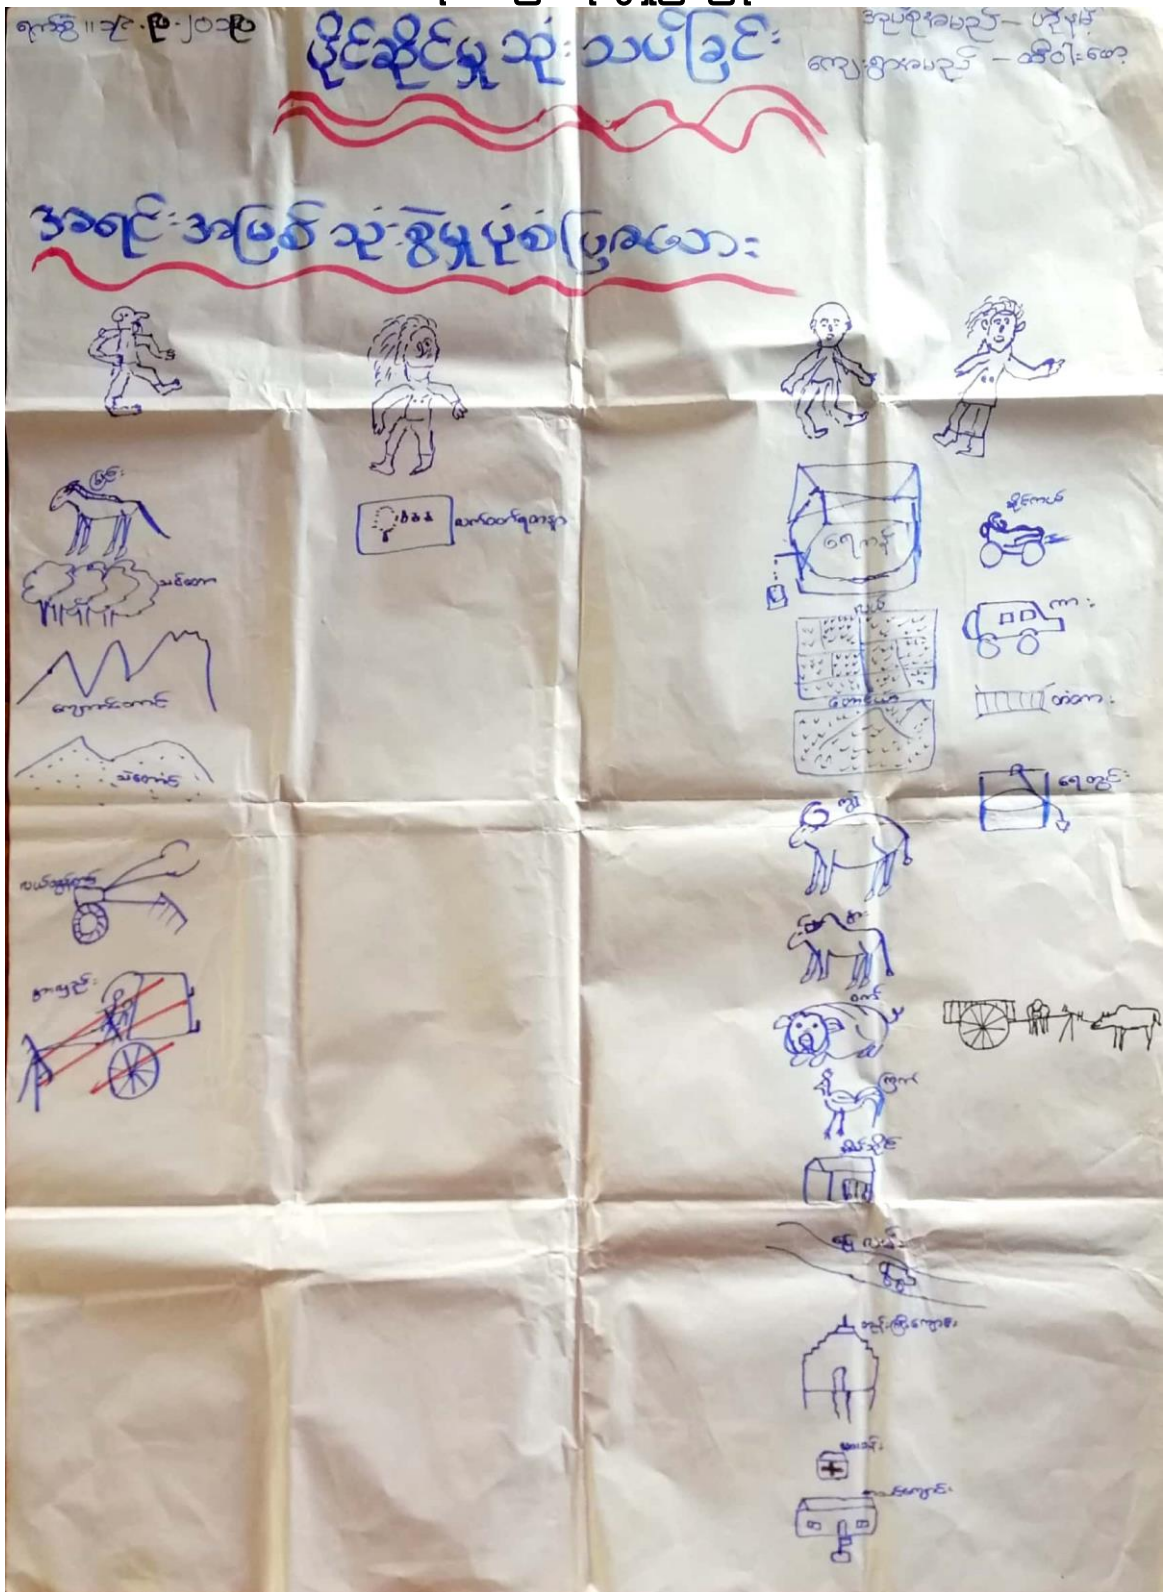 ရက်စွဲ ။ ၁၄.၉.၂၀၁၉
ပိုင်ဆိုင်မှု သုံးသပ်ခြင်း
အုပ်စုအမည် –
ကျေးရွာအမည် –
အရင်းအမြစ် သုံးစွဲမှု ပုံစံပြဇယား
မြင်း
သစ်တော
ကျောက်တောင်
သဲတောင်
လယ်ထွန်စက်
လက်ဝတ်ရတနာ
ရေကန်
လယ်
တောင်ယာ
ကျွဲ
နွား
ဝက်
ကြက်
မြေလမ်း
ဘုန်းကြီးကျောင်း
ဆေးခန်း
စာသင်ကျောင်း
ဆိုင်ကယ်
ကား
တံတား
ရေတွင်း